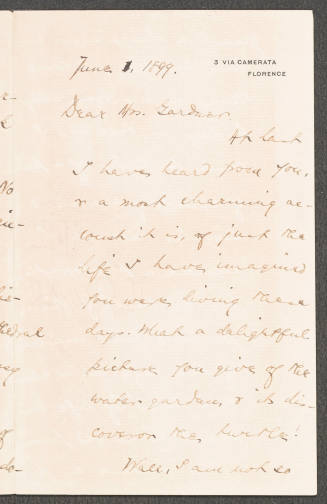 3 VIA CAMERATA
FLORENCE
June 1, 1899.
Dear Mrs. Gardner,
At last
I have heard from you,
& a most charming ac-
count it is, of just the
life I have imagined
you were living these
days. What a delightful
picture you give of the
water garden, & its dis-
coverer the turtle!
Well, I am not so